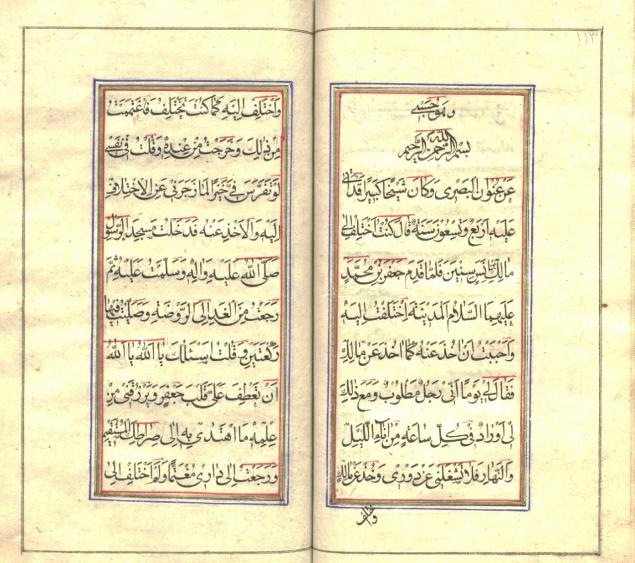 ١١٣
وهو حسبي
بسم الله الرحمن الرحيم
عن عنوان البصري وكان شيخا كبيرا قد اتى
عليه اربع وتسعون سنة قال كنت اختلف الى
مالك بن انس سنين فلما قدم جعفر بن محمد
عليهما السلام المدينة اختلفت اليه
واحببت ان اخذ عنه كما اخذ عن مالك
فقال لي يوما انى رجل مطلوب ومع ذلك
لى اوراد فى كل ساعة من اناء الليل
والنهار فلا تشغلنى عن وردى وخذ عن مالك
واختلف
واختلف اليه كما كنت تختلف فاغتممت
من ذلك وخرجت من عنده وقلت فى نفسى
لو تفرس فى خيرا لما زجرنى عن الاختلاف
اليه والاخذ عنه فدخلت مسجد الرسول
صلى الله عليه واله وسلمت عليه ثم
رجعت من الغد الى الروضة وصليت فيها
ركعتين وقلت اسئلك يا الله يا الله
ان تعطف على قلب جعفر وترزقنى من
علمه ما اهتدي به الى صراطك المستقيم
ورجعت الى دارى مغتما ولم اختلف الى